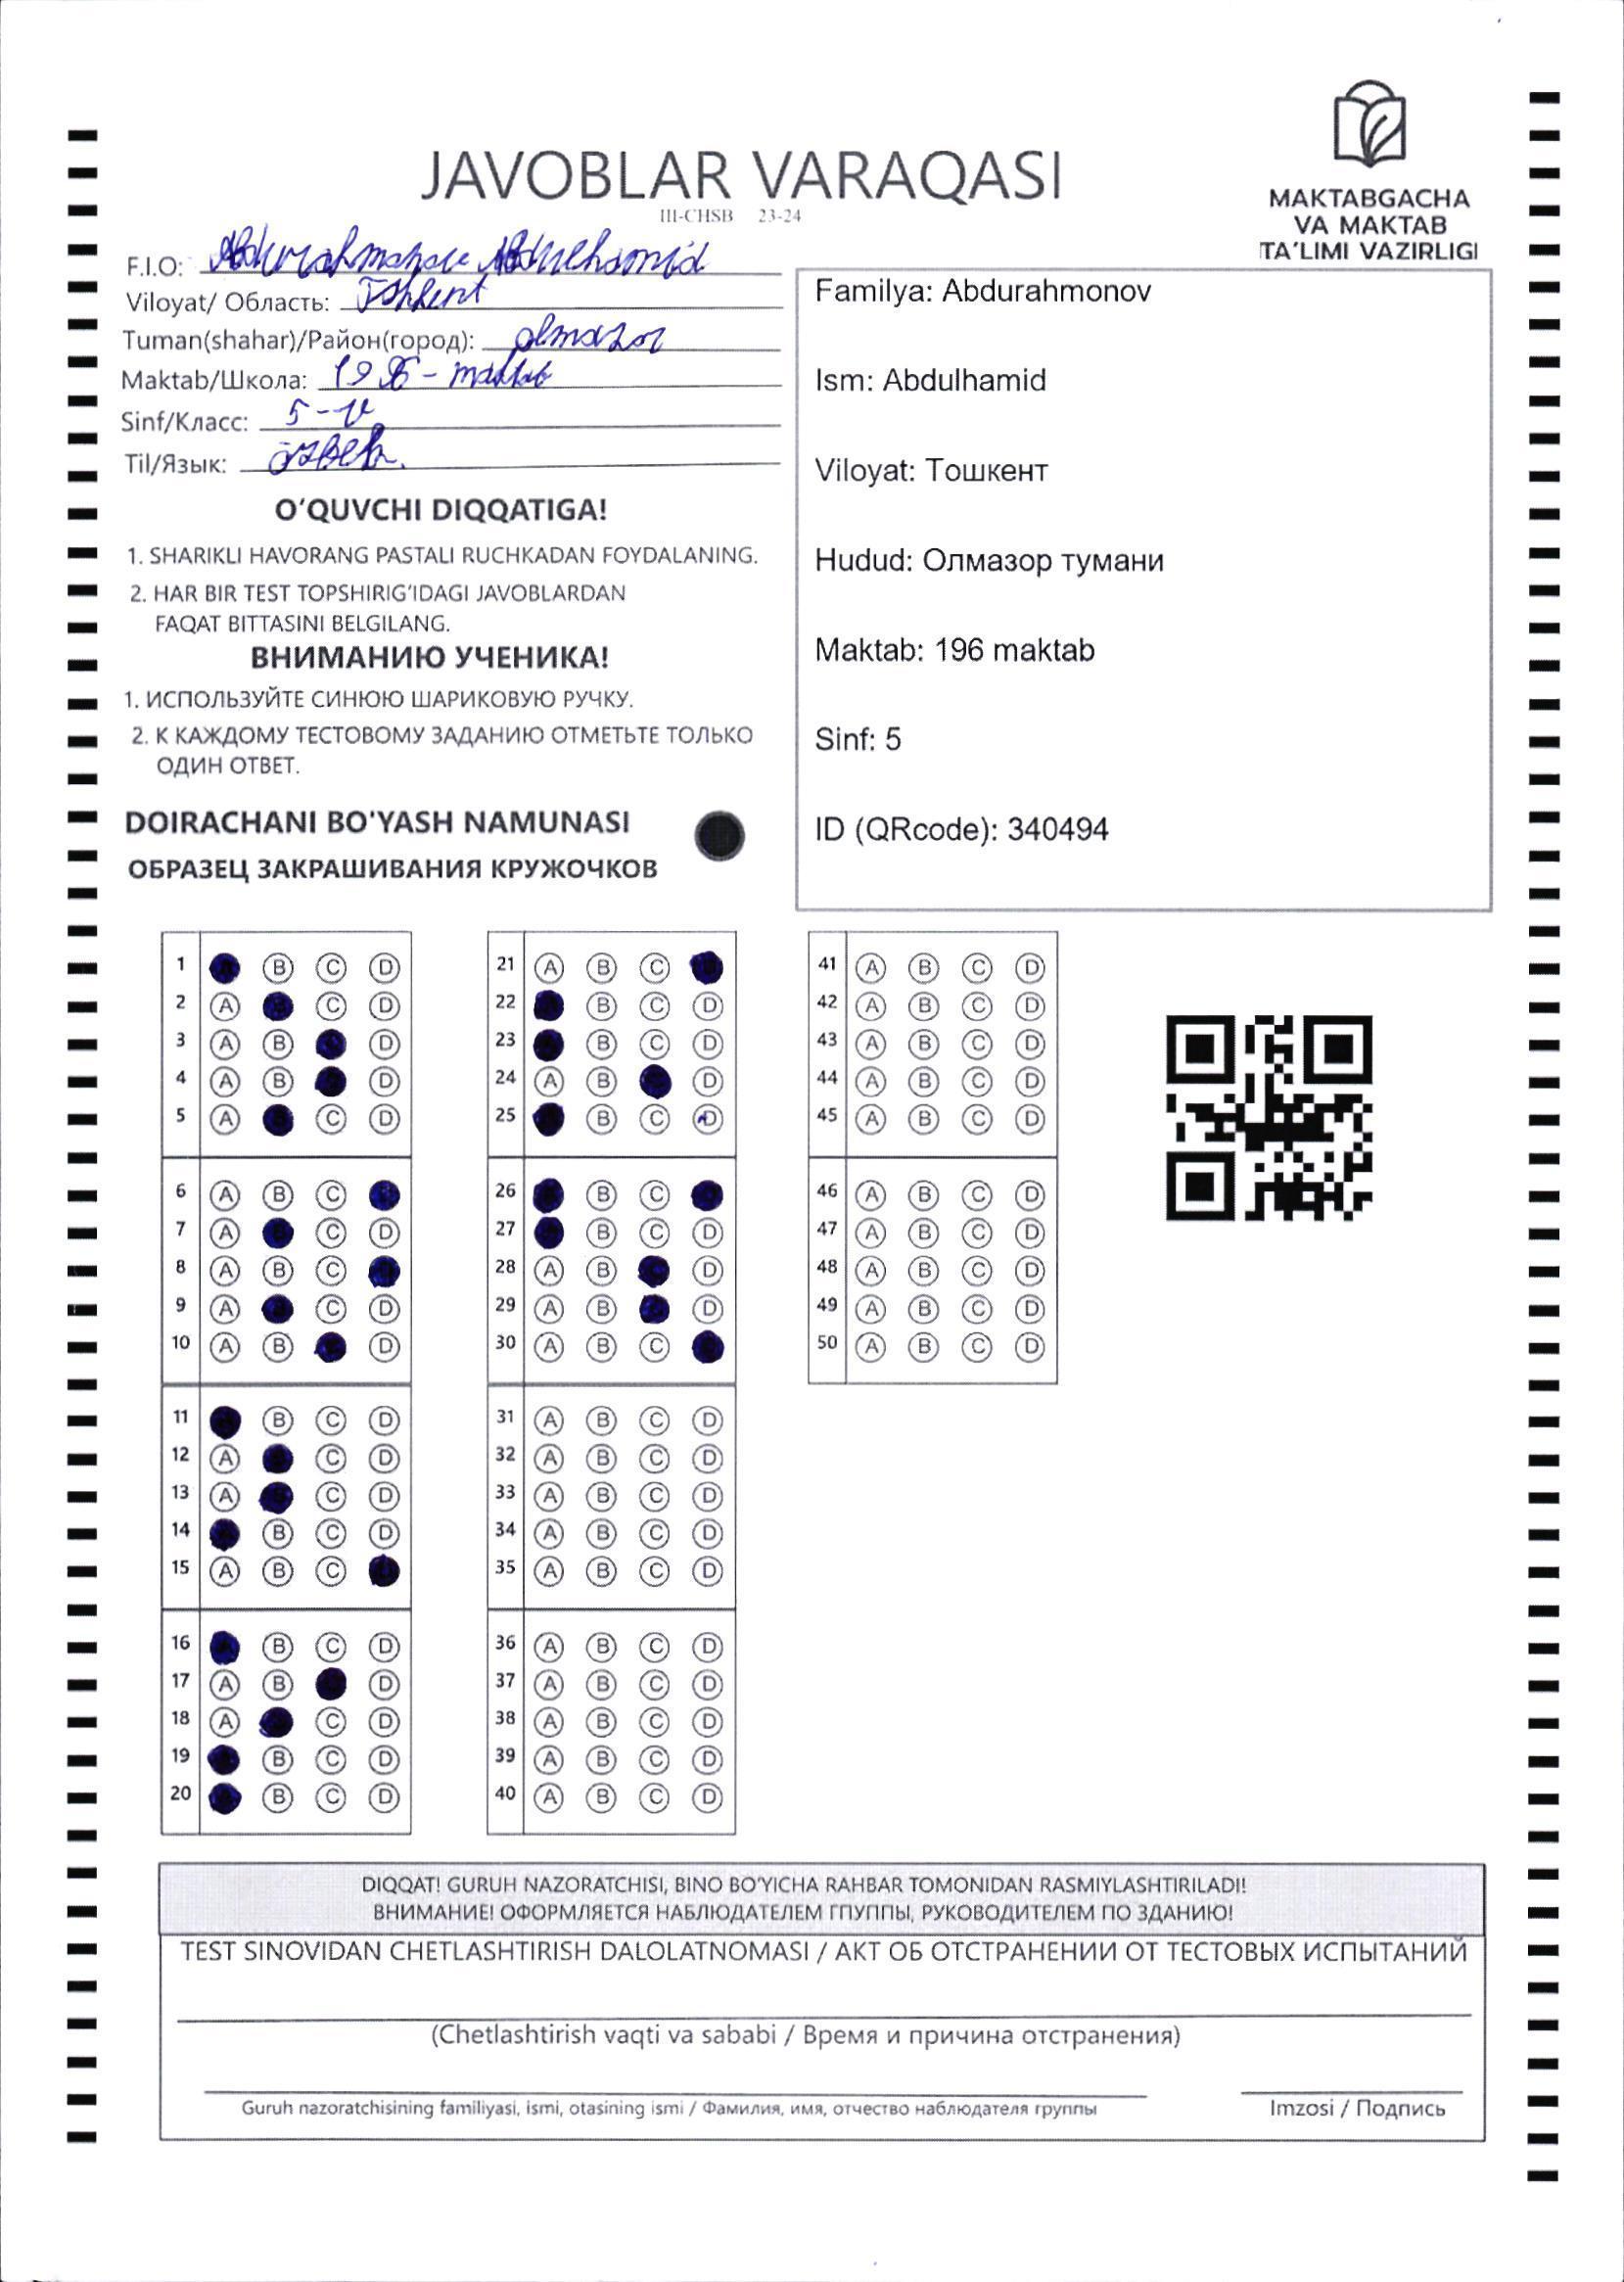 JAVOBLAR VARAQASI
III-CHSB 23-24
MAKTABGACHA
VA MAKTAB
TA'LIMI VAZIRLIGI
F.I.O: Abdurahmonov Abdulhamid
Viloyat/ Область: Toshkent
Tuman(shahar)/Район(город): olmazor
Maktab/Школа: 196 - maktab
Sinf/Класс: 5-V
Til/Язык: o'zbek.
O'QUVCHI DIQQATIGA!
1. SHARIKLI HAVORANG PASTALI RUCHKADAN FOYDALANING.
2. HAR BIR TEST TOPSHIRIG'IDAGI JAVOBLARDAN
FAQAT BITTASINI BELGILANG.
ВНИМАНИЮ УЧЕНИКА!
1. ИСПОЛЬЗУЙТЕ СИНЮЮ ШАРИКОВУЮ РУЧКУ.
2. К КАЖДОМУ ТЕСТОВОМУ ЗАДАНИЮ ОТМЕТЬТЕ ТОЛЬКО
ОДИН ОТВЕТ.
DOIRACHANI BO'YASH NAMUNASI
ОБРАЗЕЦ ЗАКРАШИВАНИЯ КРУЖОЧКОВ
Familya: Abdurahmonov
Ism: Abdulhamid
Viloyat: Тошкент
Hudud: Олмазор тумани
Maktab: 196 maktab
Sinf: 5
ID (QRcode): 340494
1 B C D
2 A C D
3 A B D
4 A B D
5 A C D
6 A B C
7 A C D
8 A B C
9 A C D
10 A B D
11 B C D
12 A C D
13 A C D
14 B C D
15 A B C
16 B C D
17 A B D
18 A C D
19 B C D
20 B C D
21 A B C
22 B C D
23 B C D
24 A B D
25 B C D
26 B C
27 B C D
28 A B D
29 A B D
30 A B C
31 A B C D
32 A B C D
33 A B C D
34 A B C D
35 A B C D
36 A B C D
37 A B C D
38 A B C D
39 A B C D
40 A B C D
41 A B C D
42 A B C D
43 A B C D
44 A B C D
45 A B C D
46 A B C D
47 A B C D
48 A B C D
49 A B C D
50 A B C D
DIQQAT! GURUH NAZORATCHISI, BINO BO'YICHA RAHBAR TOMONIDAN RASMIYLASHTIRILADI!
ВНИМАНИЕ! ОФОРМЛЯЕТСЯ НАБЛЮДАТЕЛЕМ ГПУППЫ, РУКОВОДИТЕЛЕМ ПО ЗДАНИЮ!
TEST SINOVIDAN CHETLASHTIRISH DALOLATNOMASI / АКТ ОБ ОТСТРАНЕНИИ ОТ ТЕСТОВЫХ ИСПЫТАНИЙ
(Chetlashtirish vaqti va sababi / Время и причина отстранения)
Guruh nazoratchisining familiyasi, ismi, otasining ismi / Фамилия, имя, отчество наблюдателя группы
Imzosi / Подпись